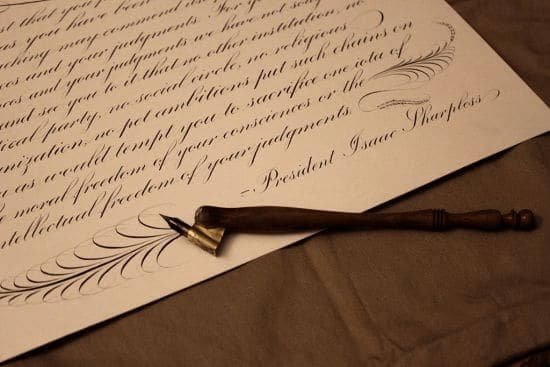 st that you
as you have been
aching may commend itse
ces and your judgments. For y
nces and your judgments we have not soug
nd see you to it that no other institution, no
tical party, no social circle, no religious
nization, no pet ambitions put such chains on
u as would tempt you to sacrifice one iota of
e moral freedom of your consciences or the
ntellectual freedom of your judgments.
- President Isaac Sharpless